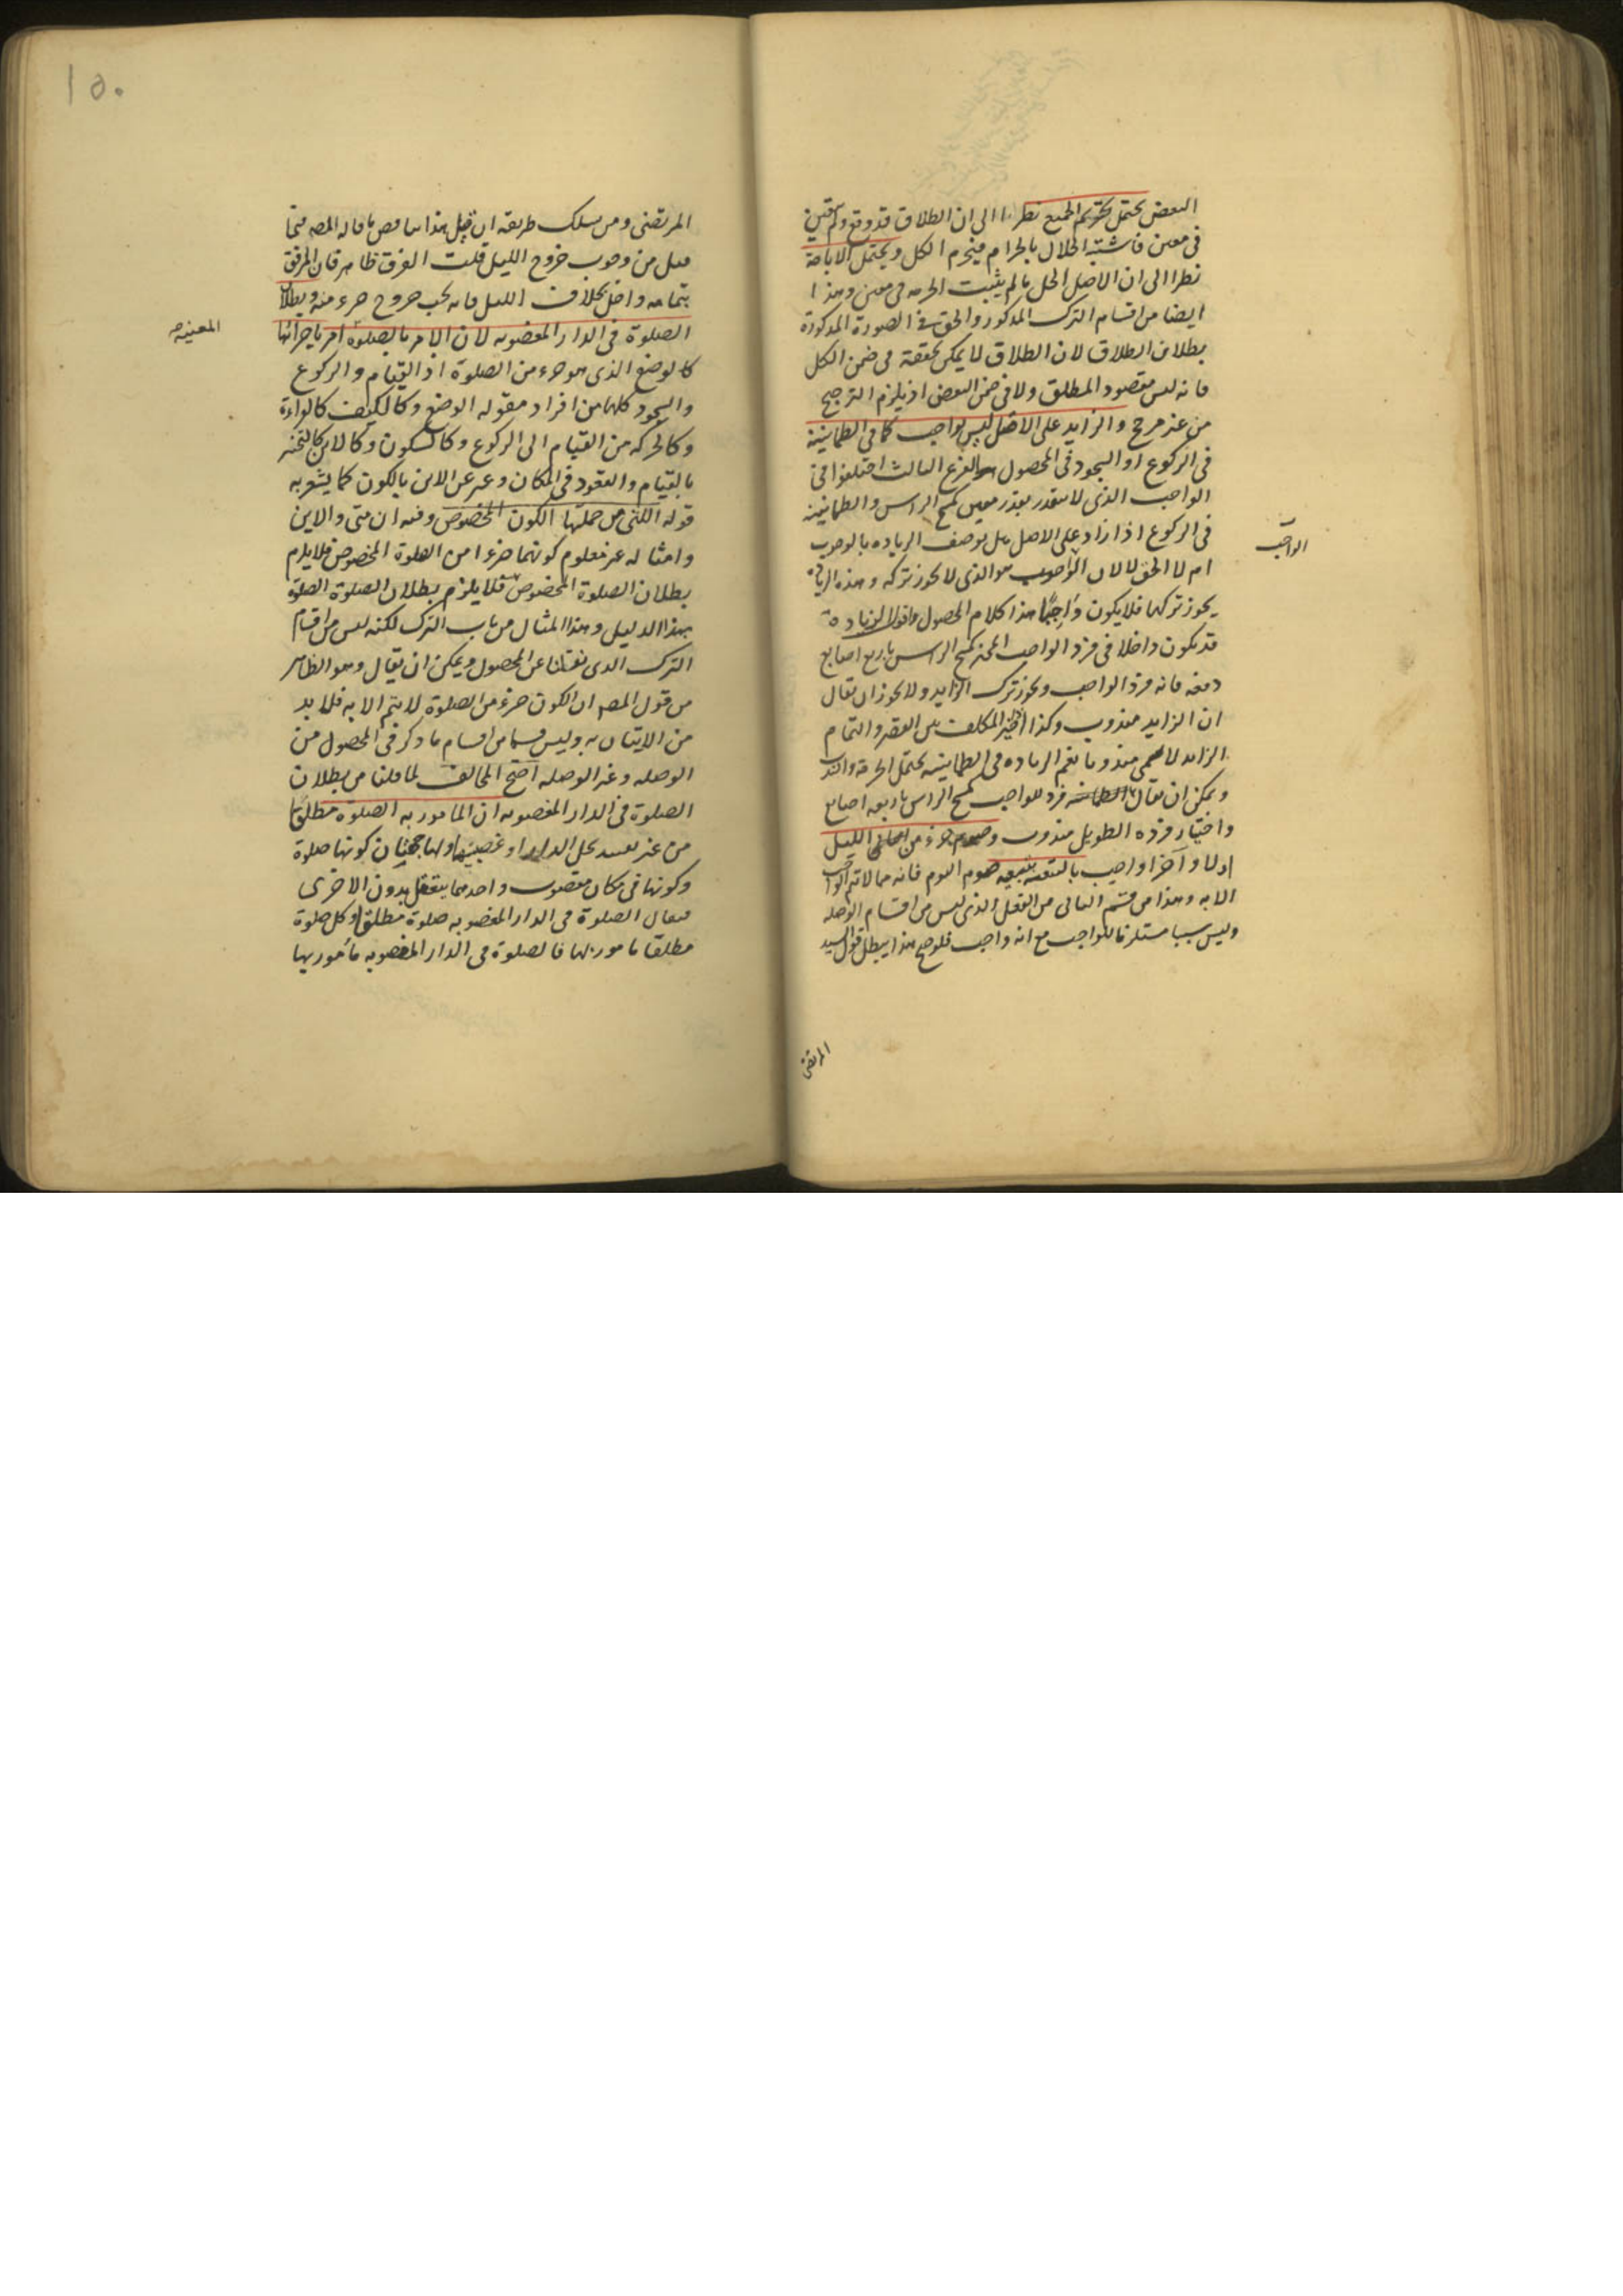 البعض يحتمل تحريم الجميع نظرا الى ان الطلاق قد وقع ولم يتعين
فى معين فاشتبه الحلال بالحرام فيحرم الكل ويحتمل الاباحة
نظرا الى ان الاصل الحل ما لم يثبت الحرمه فى معين وهذا
ايضا من اقسام الترك المذكور والحق فى الصورة المذكورة
بطلان الطلاق لان الطلاق لا يمكن تحققه فى ضمن الكل
فانه ليس مقصود المطلق ولا فى ضمن البعض اذ يلزم الترجيح
من غير مرجح والزايد على الاصل ليس بواجب كما فى الطمانينة
فى الركوع او السجود فى المحصول الفرع الثالث اختلفوا فى
الواجب الذى لا يتقدر بقدر معين كمسح الراس والطمانينه
فى الركوع اذا زاد على الاصل هل توصف الزياده بالوجوب
ام لا الحق لا لان الواجب هو الذى لا يجوز تركه وهذه الزيادة
يجوز تركها فلا يكون واجبًا هذا كلام المحصول واقول الزيادة
قد يكون داخلا فى فرد الواجب المخير كمسح الراس باربع اصابع
دفعه فانه فرد الواجب ويجوز ترك الزايد ولا يجوز ان يقال
ان الزايد مندوب وكذا تخيير المكلف بين القصر والتمام
الزايد لا مندوبا نعم الزياده فى الطمانينه يحتمل الحرمة والندب
ويمكن ان يقال الطمانينه فرد للواجب كمسح الراس باربعه اصابع
واختيار فرده الطويل مندوب وصوم جزء من الليل
اولا و آخرا واجب بالتبعيه صوم اليوم فانه مما لا يتم الواجب
الا به وهذا من قسم الثانى من الفعل الذى ليس من اقسام الوصله
وليس سببا مستلزما للواجب مع انه واجب فلو صح هذا يبطل قول السيد
الواجب
المرتضى
١٥٠
المرتضى ومن سلك طريقه ان قيل هذا يناقض ما قاله المصه فيما
قبل من وجوب خروج الليل قلت الفرق ظاهر فان المرفق
بتمامه داخل بخلاف الليل فانه يجب خروج جزء منه وبطلان
الصلوة فى الدار المغصوبه لان الامر بالصلوة امر باجزائها
كالوضع الذى هو جزء من الصلوة اذ القيام والركوع
والسجود كلها من افراد مقوله الوضع وكالكيف كالقراءة
وكالحركه من القيام الى الركوع وكالسكون وكالاين كالتحيز
بالقيام والقعود فى المكان وعبر عن الاين بالكون كما يشعر به
قوله التى من جملتها الكون المخصوص وفيه ان متى والاين
وامثاله غير معلوم كونهما جزءا من الصلوة المخصوص فلا يلزم
بطلان الصلوة المخصوص فلا يلزم بطلان الصلوة الصلوة
بهذا الدليل وهذا المثال من باب الترك لكنه ليس من اقسام
الترك الذى نقلنا عن المحصول ويمكن ان يقال وهو الظاهر
من قول المصه ان الكون جزء من الصلوة لا يتم الا به فلا بد
من الاتيان به وليس قسما من اقسام ما ذكر فى المحصول من
الوصله وغير الوصله احتج المخالف لما قلنا من بطلان
الصلوة فى الدار المغصوبه ان المامور به الصلوة مطلقا
من غير تقييد بحل الدار او غصبيتها ولها جهتان كونها صلوة
وكونها فى مكان مغصوب واحدهما يتعقل بدون الاخرى
فيقال الصلوة فى الدار المغصوبه صلوة مطلقا وكل صلوة
مطلقا مامور بها فالصلوة فى الدار المغصوبه مأمور بها